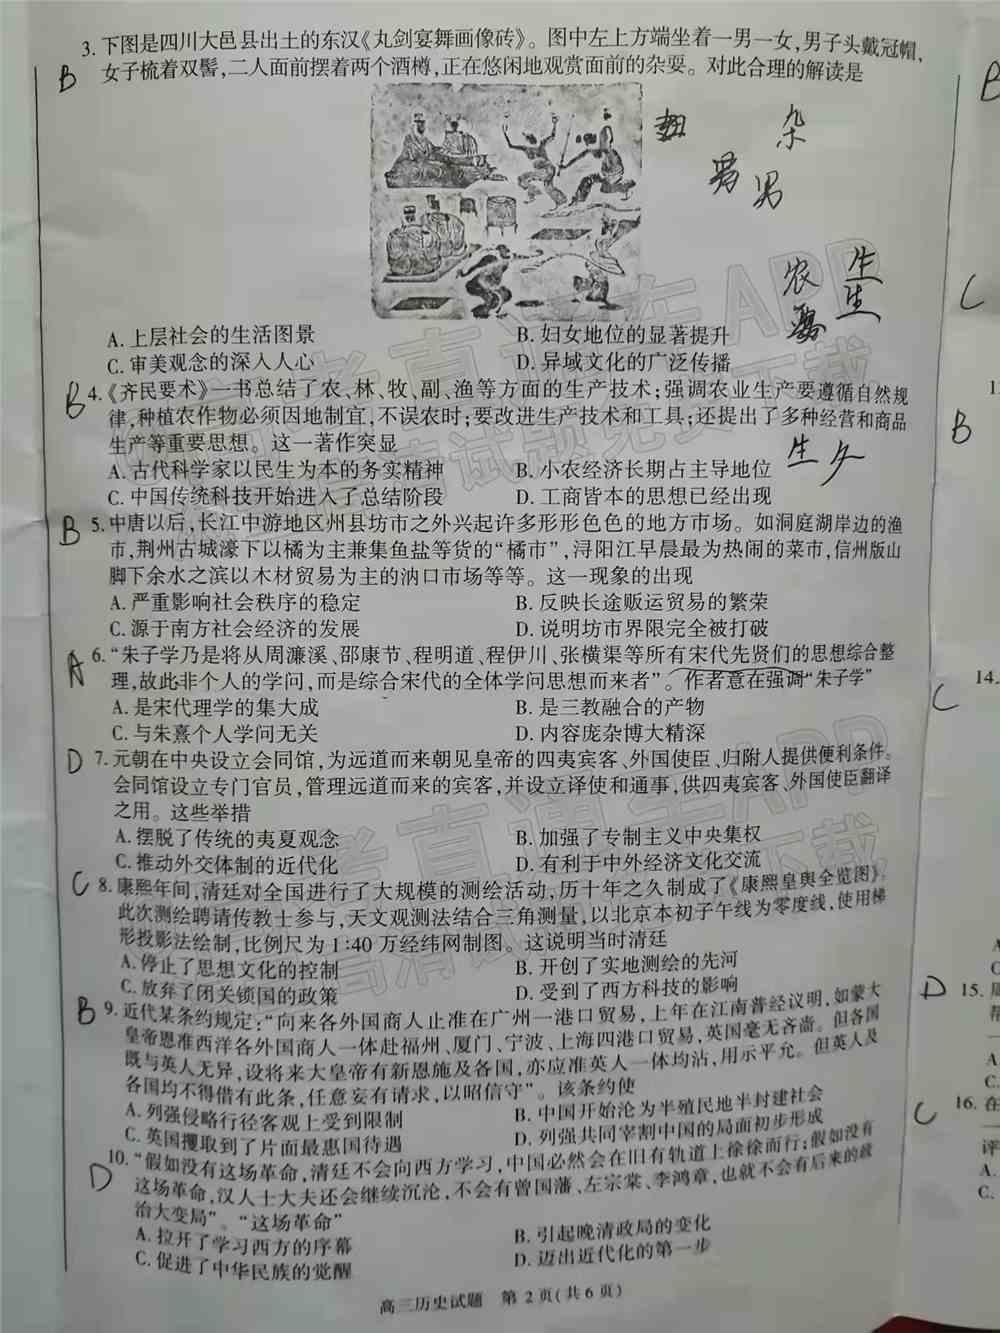 3. 下图是四川大邑县出土的东汉《丸剑宴舞画像砖》。图中左上方端坐着一男一女,男子头戴冠帽,
B
女子梳着双髻,二人面前摆着两个酒樽,正在悠闲地观赏面前的杂耍。对此合理的解读是
杂
男 男
农
生
生
A. 上层社会的生活图景 B. 妇女地位的显著提升
C. 审美观念的深入人心 D. 异域文化的广泛传播
B
4.《齐民要术》一书总结了农、林、牧、副、渔等方面的生产技术;强调农业生产要遵循自然规
律,种植农作物必须因地制宜,不误农时;要改进生产技术和工具;还提出了多种经营和商品
生产等重要思想。这一著作突显
A. 古代科学家以民生为本的务实精神 B. 小农经济长期占主导地位
C. 中国传统科技开始进入了总结阶段 D. 工商皆本的思想已经出现
B
5. 中唐以后,长江中游地区州县坊市之外兴起许多形形色色的地方市场。如洞庭湖岸边的渔
市,荆州古城濠下以橘为主兼集鱼盐等货的“橘市”,浔阳江早晨最为热闹的菜市,信州版山
脚下余水之滨以木材贸易为主的汭口市场等等。这一现象的出现
A. 严重影响社会秩序的稳定 B. 反映长途贩运贸易的繁荣
C. 源于南方社会经济的发展 D. 说明坊市界限完全被打破
A
6. “朱子学乃是将从周濂溪、邵康节、程明道、程伊川、张横渠等所有宋代先贤们的思想综合整
理,故此非个人的学问,而是综合宋代的全体学问思想而来者”。作者意在强调“朱子学”
A. 是宋代理学的集大成 B. 是三教融合的产物
C. 与朱熹个人学问无关 D. 内容庞杂博大精深
D
7. 元朝在中央设立会同馆,为远道而来朝见皇帝的四夷宾客、外国使臣、归附人提供便利条件。
会同馆设立专门官员,管理远道而来的宾客,并设立译使和通事,供四夷宾客、外国使臣翻译
之用。这些举措
A. 摆脱了传统的夷夏观念 B. 加强了专制主义中央集权
C. 推动外交体制的近代化 D. 有利于中外经济文化交流
C
8. 康熙年间,清廷对全国进行了大规模的测绘活动,历十年之久制成了《康熙皇舆全览图》。
此次测绘聘请传教士参与,天文观测法结合三角测量,以北京本初子午线为零度线,使用梯
形投影法绘制,比例尺为1:40万经纬网制图。这说明当时清廷
A. 停止了思想文化的控制 B. 开创了实地测绘的先河
C. 放弃了闭关锁国的政策 D. 受到了西方科技的影响
B
9. 近代某条约规定:“向来各外国商人止准在广州一港口贸易,上年在江南曾经议明,如蒙大
皇帝恩准西洋各外国商人一体赴福州、厦门、宁波、上海四港口贸易,英国毫无吝啬。但各国
既与英人无异,设将来大皇帝有新恩施及各国,亦应准英人一体均沾,用示平允。但英人及
各国均不得借有此条,任意妄有请求,以昭信守”。该条约使
A. 列强侵略行径客观上受到限制 B. 中国开始沦为半殖民地半封建社会
C. 英国攫取到了片面最惠国待遇 D. 列强共同宰割中国的局面初步形成
D
10. “假如没有这场革命,清廷不会向西方学习,中国必然会在旧有轨道上徐徐而行;假如没有
这场革命,汉人士大夫还会继续沉沦,不会有曾国藩、左宗棠、李鸿章,也就不会有后来的政
治大变局”。“这场革命”
A. 拉开了学习西方的序幕 B. 引起晚清政局的变化
C. 促进了中华民族的觉醒 D. 迈出近代化的第一步
高三历史试题 第2页(共6页)
B
C
B
14.
C
D
15.
C
16. 在
评
A.
C.